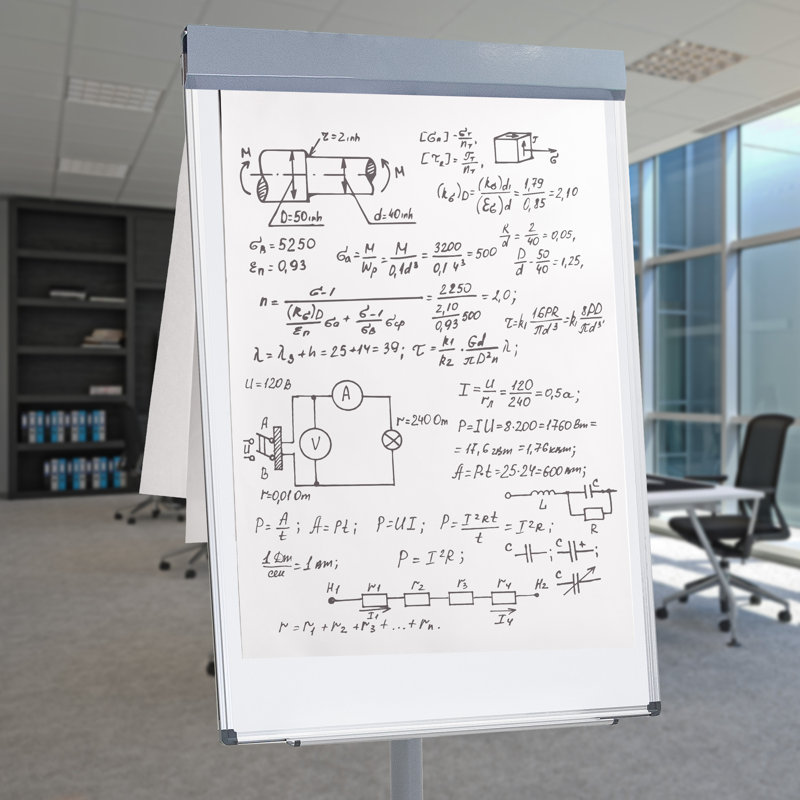 τ=2inh
M
M
D=50inh
d=40inh
[σn]=σT/nT,
[τR]=σT/nT,
τ
σ
(kσ)D=(kσ)d1/(εσ)d=1,79/0,85=2,10
σB=5250
εn=0,93
σa=M/Wp=M/0,1d³=3200/0,1 4³=500
R/d=2/40=0,05,
D/d=50/40=1,25,
n=σ-1/((Kσ)D/εn σa+σ-1/σB σcp)=2250/(2,10/0,93 500)=2,0;
τ=k1 16PR/πd³=k1 8PD/πd³
λ=λg+h=25+14=39; τ=k1/k2·Gd/πD²n λ;
u=120В
A
V
A
B
U
r=240 Om
r=0,01 Om
I=u/rл=120/240=0,5a;
P=IU=8·200=1760 Вт=
=17,6гвт=1,76квт;
A=P·t=25·24=600 вт;
L
C
R
P=A/t; A=Pt; P=UI; P=I²Rt/t=I²R;
1Дж/сек=1вт;
P=I²R;
C
;
C
+
;
C
H1
r1
r2
r3
r4
H2
I1
I4
r=r1+r2+r3+...+rn.